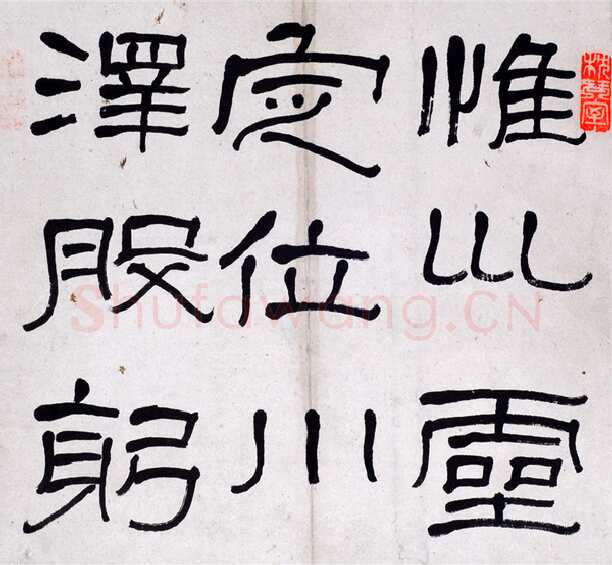 惟巛靈
定位川
澤股躬
Shufawang.CN